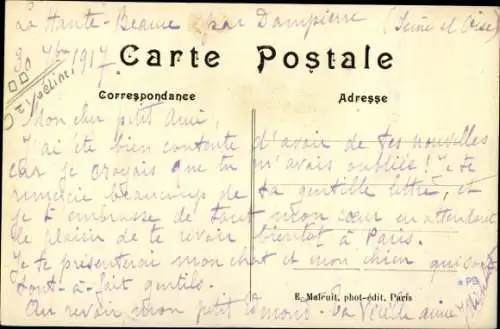 La Haute-Beauce par Dampierre (Seine et Oise)
30 7bre 1917.
Carte Postale
Correspondance
Adresse
Mon cher petit ami,
J'ai été bien contente d'avoir de tes nouvelles
car je croyais que tu m'avais oubliée! Je te
remercie beaucoup de ta gentille lettre, et
je t'embrasse de tout mon cœur en attendant
le plaisir de te revoir bientôt à Paris.
Je te présenterai mon chat et mon chien qui sont
tout-à-fait gentils.
Au revoir, mon petit Edmond. Ta vieille amie
E. Mafeuit, phot-édit, Paris